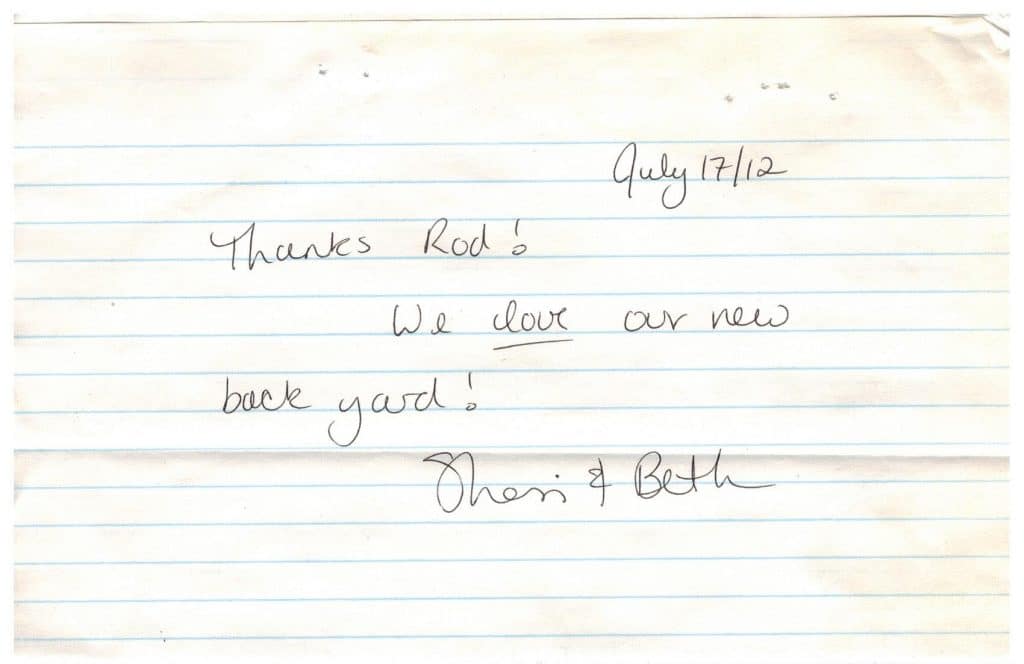 July 17/12
Thanks Rod!
We love our new
back yard!
Sheri & Beth